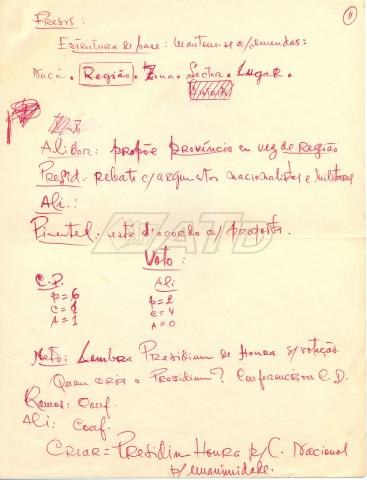 11
Presid:
Estrutura de base: mantem-se c/emendas:
Nação. Região. Zona. Sector. Lugar.
Alidor: propõe província em vez de Região
Presid: rebate c/argumentos nacionalistas e militares
Ali.:
Pimentel: está d'acordo c/ proposta.
ATD
Voto:
C.P. Ali
p=6 p=2
c=1 c=4
A=1 A=0
Neto: Lembra Presidium de Honra s/votação
Quem cria o Presidium? Conferência C.D.
Ramos: Conf.
Ali: Conf.
Criar = Presidium Honra p/C. Nacional
p/unanimidade.